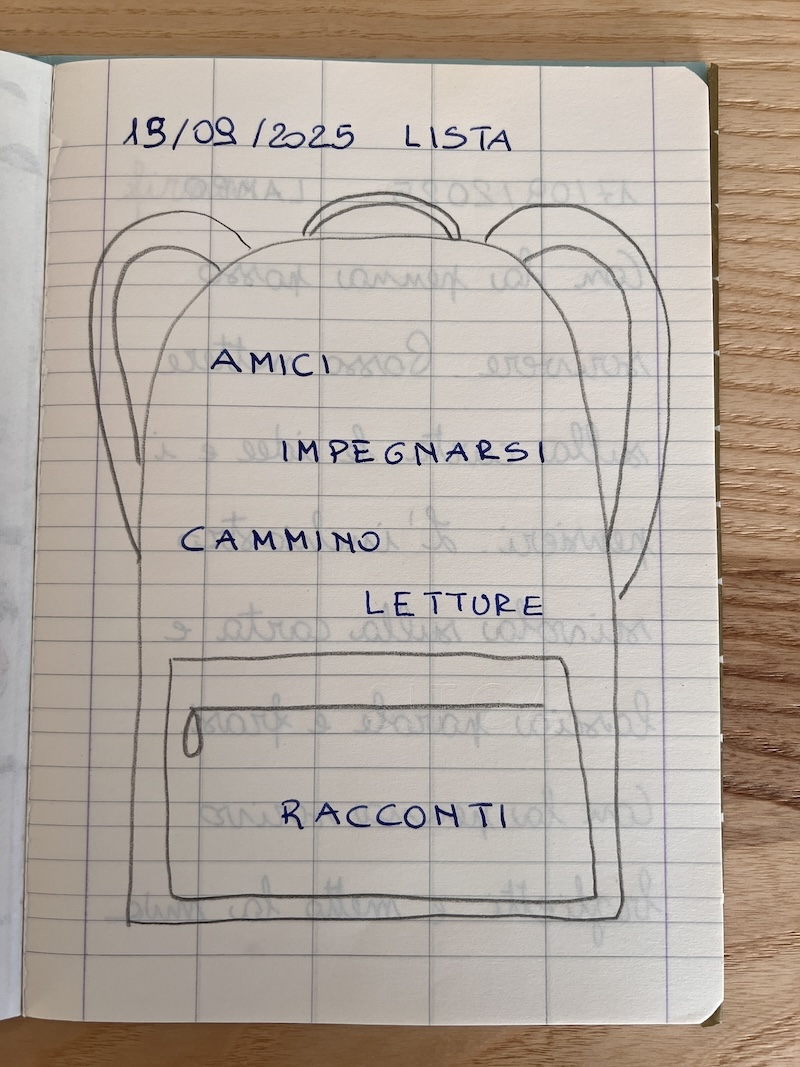 19/09/2025 LISTA
AMICI
IMPEGNARSI
CAMMINO
LETTURE
RACCONTI